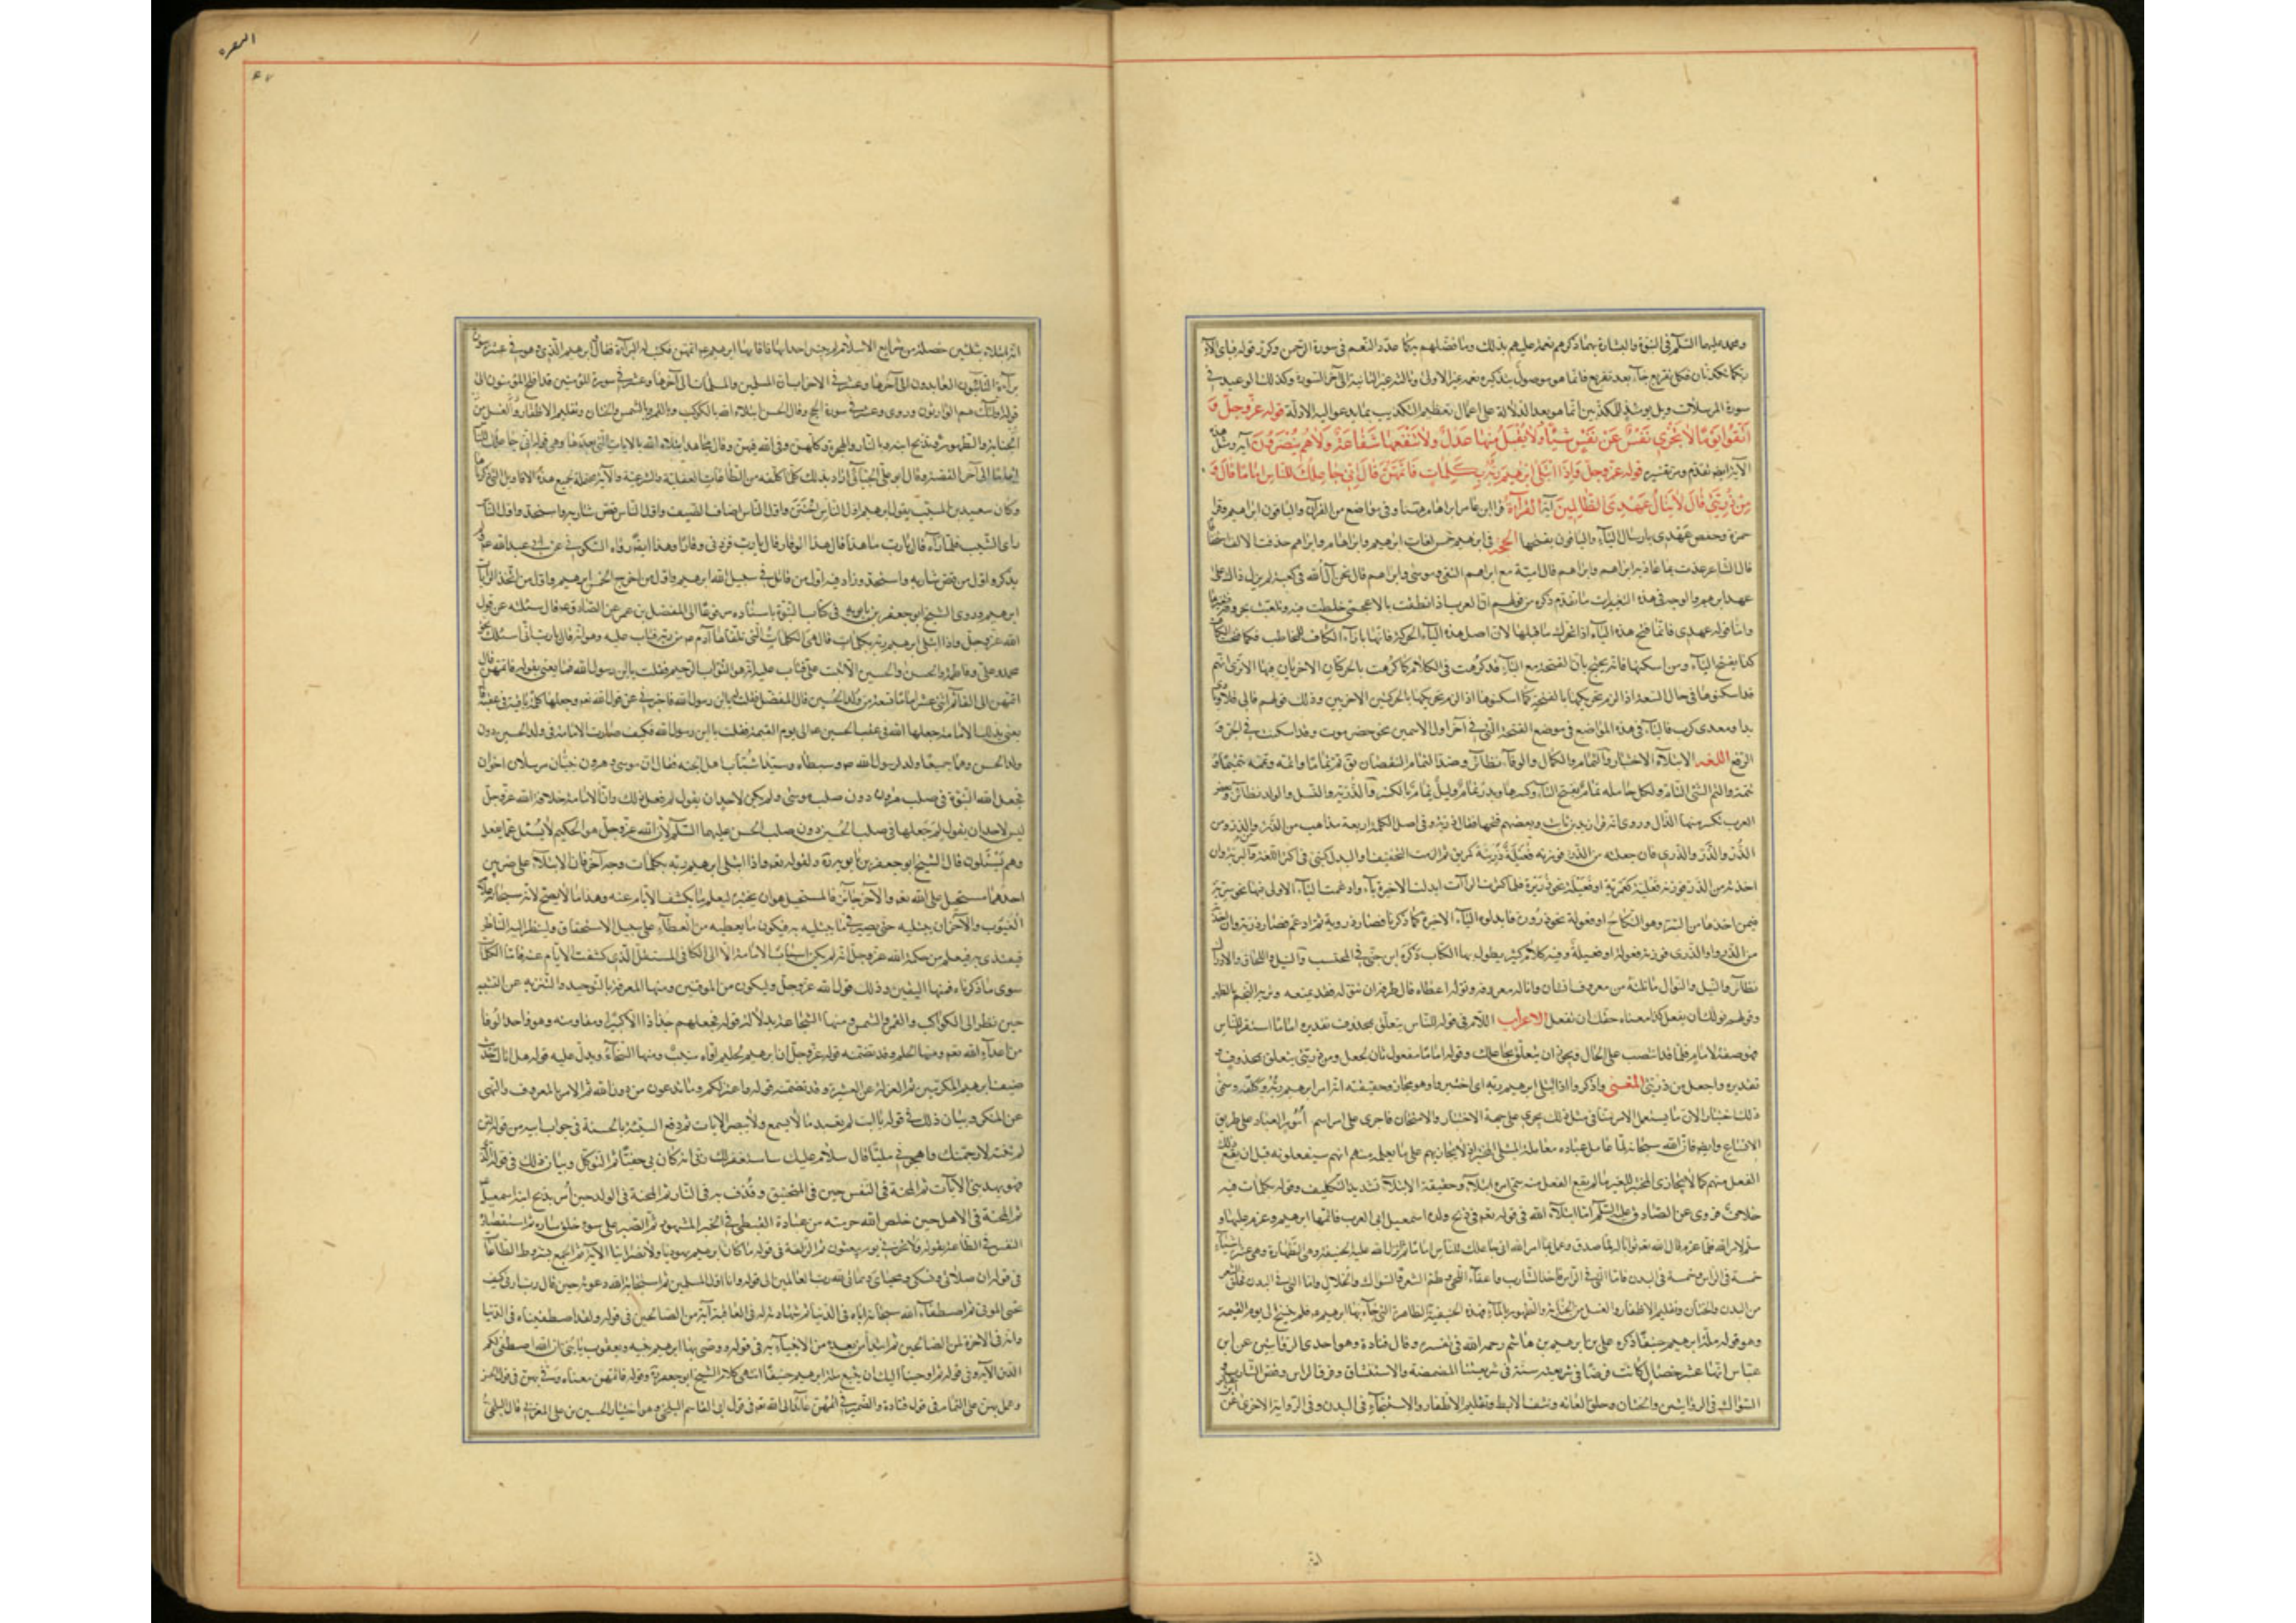 ومحمد عليهما السلم في النبوة والبشارة بهما ذكرهم نعمه عليهم بذلك وما فضلهم به كما عدد النعم في سورة الرحمن وكرر قوله فباي الآء
ربكما تكذبان فكل تقريع جاء بعد تقريع فانما هو موصول بتذكير نعمه غير الاولى وثالثه غير الثانية الى آخر السورة وكذلك الوعيد في
سورة المرسلات ويل يومئذ للمكذبين انما هو بعد الدلالة على اعمال تعظيم التكذيب بما يدعو اليه الادلة قوله عز وجل وَ
اتَّقُوا يَوْمًا لَا تَجْزِي نَفْسٌ عَنْ نَفْسٍ شَيْئًا وَلَا يُقْبَلُ مِنْهَا عَدْلٌ وَلَا تَنْفَعُهَا شَفَاعَةٌ وَلَا هُمْ يُنْصَرُونَ آية ومثل هذه
الآية ايضا تقدم ومر تفسيره قوله عز وجل وَإِذِ ابْتَلَى إِبْرَاهِيمَ رَبُّهُ بِكَلِمَاتٍ فَأَتَمَّهُنَّ قَالَ إِنِّي جَاعِلُكَ لِلنَّاسِ إِمَامًا قَالَ وَ
مِنْ ذُرِّيَّتِي قَالَ لَا يَنَالُ عَهْدِي الظَّالِمِينَ آية القراءة قرا ابن عامر ابراهام هيهنا وفي مواضع من القرآن والباقون ابراهيم وقرا
حمزة وحفص عَهْدِي بارسال الياء والباقون بفتحها الحجة في ابراهيم خمس لغات ابراهيم وابراهام وابراهم حذفت الالف استخفافا
قال الشاعر عذت بما عاذ به ابراهم وابراهم قال امية مع ابراهم التقى وموسى وابراهم قال نحن آل الله في كعبته لم يزل ذاك على
عهد ابرهم والوجه في هذه التغيرات ما تقدم ذكره من قولهم ان العرب اذا نطقت بالاعجمي خلطت فيه وتلعبت بحروفه فغيرتها
واما قوله عهدي فانما فتح هذه الياء اذا تحرك ما قبلها لان اصل هذه الياء الحركة فانها بازاء الكاف للمخاطب فكما فتحت الكاف
كذا يفتح الياء ومن اسكنها فانه يحتج بان الفتحة مع الياء قد كرهت في الكلام كما كرهت بالحركتان الاخريان فيها الا ترى انهم
قد اسكنوها في حال السعة اذا لزم تحريكها بالفتحة كما اسكنوها اذا لزم تحريكها بالحركتين الاخريين وذلك قولهم قالي قلا وبادي
بدا ومعدي كرب فالياء في هذه المواضع في موضع الفتحة التي في آخر اول الاسمين نحو حضرموت وقد اسكنت في الجر و
الرفع اللغه الابتلاء الاختبار والتمام والكمال والوفاء نظائر وضد التمام النقصان يق تم تماما واتمه وتممه تتميما و
تتمة والتم الشئ التام ولكل حاملة تمام بفتح التاء وكسرها وبدر تمام وليل تمام بالكسر والذرية والنسل والولد نظائر وبعض
العرب تكسر منها الذال وروى انه قرا زيد بن ثابت وبعضهم فتحها فقال ذرية وفي اصل الكلمة اربعة مذاهب من الذرء ومن الذر ومن
الذُّرْو والذَّرْو والذري فان جعلته من الذرء فوزنه فعيلة كمريق ثم الزمت التخفيف او البدل كنبي في اكثر اللغة والبرية وان
اخذته من الذر فوزنه فعلية كقمرية او فعيلة نحو ذريرة فلما كثرت الراآت ابدلت الاخيرة ياء وادغمت الياء الاولى فيها نحو سرية
فيمن اخذها من السر وهو النكاح او فعولة نحو ذرورة فابدلوا الياء الاخيرة كما ذكرنا فصار ذروية ثم ادغم فصار ذرية وان اخذته
من الذرو او الذري فوزنه فعولة او فعيلة وفيه كلام كثير يطول بها الكتاب ذكره ابن جنى في المحتسب والنيل واللحاق والادراك
نظائر والنيل والنوال ما نلته من معروف انسان واناله معروفه ونوله اعطاه قال طرفة ان تنوله فقد تمنعه وتريه النجم بالظهر
وقولهم نولك ان يفعل كذا معناه حقك ان تفعل الاعراب اللام في قوله للناس يتعلق بمحذوف تقديره اماما استقر للناس
فهو صفة لامام فلما قدمه انتصب على الحال ويجوز ان يتعلق بجاعلك وقوله اماما مفعول ثان لجعل ومن ذريتي يتعلق بمحذوف
تقديره واجعل من ذريتي المعنى واذكروا اذ ابتلى ابرهيم ربه اى اختبر وهو مجاز وحقيقته انه امر ابرهيم ربه وكلفه وسمى
ذلك اختبارا لان ما يستعمل الامر منا في مثل ذلك يجري على جهة الاختبار والامتحان فاجرى على امره اسم امور العباد على طريق
الاتساع وايضا فان الله سبحانه لما عامل عباده معاملة المبتلى المختبر اذ لا يجازيهم على ما يعلمه منهم انهم سيفعلونه قبل ان يقع ذلك
الفعل منهم كما لا يجازى المختبر للغير ما لم يقع الفعل منه سمى امره ابتلاء وحقيقة الابتلاء تشديد التكليف وقوله بكلمات فيه
خلاف فروى عن الصادق عليه السلم انه ما ابتلاه الله في نومه في ذبح ولده اسمعيل ابي العرب فاتمها ابرهيم وعزم عليها و
سلم لامر الله فلما عزم قال الله تعالى ثوابا له لما صدق وعمل بما امر الله انى جاعلك للناس اماما ثم انزل الله عليه الحنيفية وهي الطهارة وهي عشرة اشياء
خمسة في الراس وخمسة في البدن فاما التي في الراس فاخذ الشارب واعفاء اللحى وطم الشعر والسواك والخلال واما التي في البدن فحلق الشعر
من البدن والختان وتقليم الاظفار والغسل من الجنابة والطهور بالماء فهذه الحنيفية الطاهرة التي جاء بها ابرهيم فلم ينسخ الى يوم القيمة
وهو قوله ملة ابرهيم حنيفا ذكره على بن ابرهيم بن هاشم رحمه الله في تفسيره وقال قتادة وهو احدى الروايتين عن ابن
عباس انها عشر خصال كانت فرضا في شريعته سنة في شريعتنا المضمضة والاستنشاق وفرق الراس وقص الشارب و
السواك في الرواية من والختان وحلق العانه ونتف الابط وتقليم الاظفار والاستنجاء في البدن وفي الرواية الاخرى عن
البقره
انه ابتلاه بثلثين خصلة من شرايع الاسلام لم يبتل احدا بها فاقامها ابرهيم عليه اتمهن فكتب له البراءة فقال وابرهيم الذي وفى وهو عشر في سورة
براءة التائبون العابدون الى آخرها وعشر في الاحزاب ان المسلمين والمسلمات الى آخرها وعشر في سورة المؤمنين قد افلح المؤمنون الى
قوله اولئك هم الوارثون وروى وعشر في سورة الحج وقال الحسن ابتلاه الله بالكوكب وبالقمر وبالشمس والختان وتقليم الاظفار والغسل من
وبذبح ابنه وبالنار وبالهجرة وكلهن وفى لله فيهن وقال مجاهد ابتلاه الله بالآيات التي بعدها وهي قوله اني جاعلك للناس
اماما الى آخر القصة وقال ابو على الجبائي اراد بذلك كلما كلفه من الطاعات العقلية والشرعية والآية محتملة لجميع هذه الاقاويل التي ذكرناها
وكان سعيد بن المسيب يقول ابرهيم اول الناس اختتن واول الناس اضاف الضيف واول الناس قص شاربه واستحد واول الناس
راى الشيب فلما رآه قال يا رب ما هذا قال هذا الوقار قال يا رب فزدني وقارا وهذا ايضا رواه السكوني عن ابي عبد الله
يذكر واول من قص شاربه واستحد وزاد فيه اول من قاتل في سبيل الله ابرهيم واول من اخرج الخمس ابرهيم واول من اتخذ الرايات
ابرهيم وروى الشيخ ابو جعفر بن بابويه في كتاب النبوة باسناده مرفوعا الى المفضل بن عمر عن الصادق ع قال سئلته عن قول
الله عز وجل واذ ابتلى ابرهيم ربه بكلمات قال هي الكلمات التي تلقاها آدم ع من ربه فتاب عليه وهو انه قال يا رب اني اسئلك بحق
محمد وعلى وفاطمة والحسن والحسين الا تبت على فتاب عليه انه هو التواب الرحيم فقلت يا ابن رسول الله فما يعني بقوله فاتمهن قال
اتمهن الى القائم اثنى عشر اماما تسعة من ولد الحسين قال المفضل فقلت يا ابن رسول الله فاخبرني عن قول الله تعالى وجعلها كلمة باقية في عقبه
يعني بذلك الامامة جعلها الله في عقب الحسين ع الى يوم القيمة فقلت يا ابن رسول الله فكيف صارت الامامة في ولد الحسين دون
ولد الحسن وهما جميعا ولدا رسول الله ص وسبطاه وسيدا شباب اهل الجنه فقال ان موسى وهرون نبيان مرسلان اخوان
فجعل الله النبوة في صلب هرون دون صلب موسى ولم يكن لاحد ان يقول لم فعل ذلك وان الامامة خلافة الله عز وجل
ليس لاحد ان يقول لم جعلها في صلب الحسين دون صلب الحسن عليهما السلم لان الله عز وجل هو الحكيم لا يُسئل عما يفعل
وهم يُسئلون قال الشيخ ابو جعفر بن بابويه ولقوله تعالى واذ ابتلى ابرهيم ربه بكلمات وجه آخر فان الابتلاء على ضربين
احدهما مستحيل على الله تعالى والآخر جائز فالمستحيل هو ان يختبره ليعلم ما يكشف الايام عنه وهذا ما لا يصح لانه سبحانه علام
الغيوب والآخر ان يبتليه حتى يصبر فيما يبتليه به فيكون ما يعطيه من العطاء على سبيل الاستحقاق ولينظر اليه الناظر
فيقتدى به فيعلم من حكمة الله عز وجل انه لم يكن اسباب الامامة الا الى الكافي المستقل الذي كشفت الايام عنه فاما الكلمات
سوى ما ذكرناه فمنها اليقين وذلك قول الله عز وجل وليكون من الموقنين ومنها المعرفة بالتوحيد والتنزيه عن التشبيه
حين نظر الى الكواكب والقمر والشمس ومنها الشجاعة بدلالة قوله فجعلهم جذاذا الا كبيرا ومقاومته وهو واحد الوفا
من اعداء الله تعالى ومنها الحلم وقد تضمنه قوله عز وجل ان ابرهيم لحليم اواه منيب ومنها السخاء ويدل عليه قوله هل اتاك حديث
ضيف ابرهيم المكرمين ثم العزلة عن العشيرة وقد تضمنه قوله واعتزلكم وما تدعون من دون الله ثم الامر بالمعروف والنهى
عن المنكر وبيان ذلك في قوله يا ابت لم تعبد ما لا يسمع ولا يبصر الايات ثم دفع السيئة بالحسنة في جواب ابيه من قوله لئن
لم تنته لارجمنك واهجرني مليا قال سلام عليك ساستغفر لك ربى انه كان بى حفيا ثم التوكل وبيان ذلك في قوله الذي خلقني
فهو يهدين الآيات ثم المحنة في النفس حين في المنجنيق وقُذف به في النار ثم المحنة في الولد حين أمر بذبح ابنه اسمعيل
ثم المحنة في الاهل حين خلص الله حرمته من عبادة القبطي في الخبر المشهور ثم الصبر على سوء خلق ساره ثم استقصاره
النفس في الطاعة بقوله ولا تخزني يوم يبعثون ثم الزلفة في قوله ما كان ابرهيم يهوديا ولا نصرانيا الآية ثم الجمع بشروط الطاعات
في قوله ان صلاتي ونسكي ومحياي ومماتي لله رب العالمين الى قوله وانا اول المسلمين ثم استجابة الله دعوته حين قال رب ارني كيف
تحيى الموتى ثم اصطفاء الله سبحانه اياه في الدنيا ثم شهادته له في العاقبة انه من الصالحين في قوله ولقد اصطفيناه في الدنيا
وانه في الآخرة لمن الصالحين ثم اقتداء من بعده من الانبياء به في قوله ووصى بها ابرهيم بنيه ويعقوب يا بنى ان الله اصطفى لكم
الدين الآية وفي قوله ثم اوحينا اليك ان يتبع ملة ابرهيم حنيفا انتهى كلام الشيخ ابو جعفر وقوله فاتمهن معناه وفى بهن في قول الحسن
وعمل بهن على التمام في قول قتادة والضمير في اتمهن عائد الى الله تعالى في قول ابي القاسم البلخي وهو اختيار الحسين بن على المغربي قال البلخي